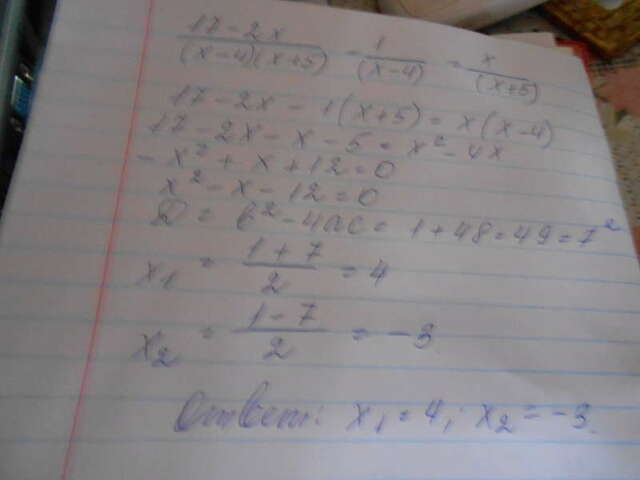 17-2x/(x-4)(x+5) - 1/(x-4) = x/(x+5)
17-2x-1(x+5)=x(x-4)
17-2x-x-5=x²-4x
-x²+x+12=0
x²-x-12=0
D=b²-4ac=1+48=49=7²
x₁ = 1+7/2 = 4
x₂ = 1-7/2 = -3
Ответ: x₁=4; x₂=-3.